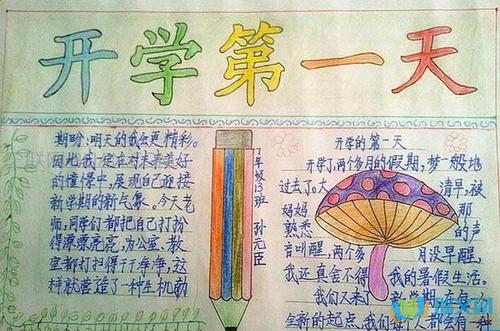 开学第一天
期盼:明天的我会更精彩。
因此我一定在对未来美好
的憧憬中,展现自己迎接
新学期的新气象。今天老
师,同学们都把自己打扮
得漂漂亮亮,办公室、教
室都打扫得干干净净,这
样就营造了一种生机勃
年级13班 孙元臣
开学的第一天
开学了,两个多月的假期,梦一般地
过去了。大清早,被
妈妈那
熟悉的声
音叫醒,两个多月没早醒,
我还真舍不得我的暑假生活。
我们又来了
全新的起点,我们每个人都会有一种